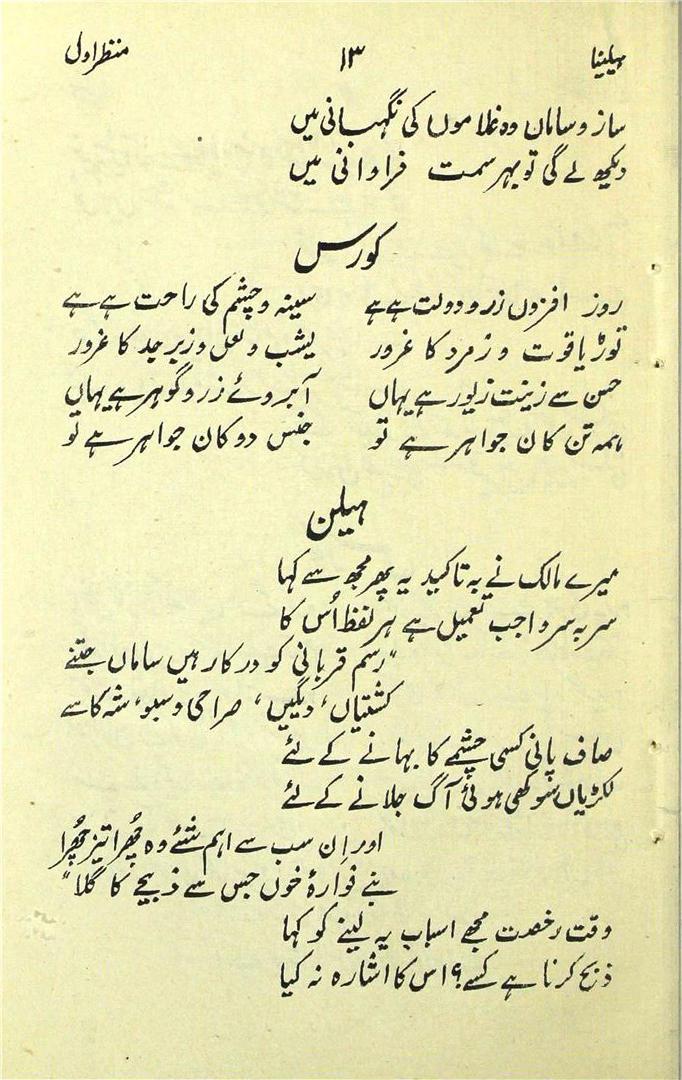 ہیلینا ۱۳ منظر اول
ساز و سامان وہ غلاموں کی نگہبانی میں
دیکھ لے گی تو بہر سمت فراوانی میں
کورس
روز افزوں زر و دولت ہے ہے سینہ و چشم کی راحت ہے ہے
توڑ یاقوت و زمرد کا غرور یشب و لعل و زبرجد کا غرور
حسن سے زینت زیور ہے یہاں آبروئے زر و گوہر ہے یہاں
ہمہ تن کان جواہر ہے تو جنس دوکان جواہر ہے تو
ہیلن
میرے مالک نے بہ تاکید یہ پھر مجھ سے کہا
سر بہ سر واجب تعمیل ہے ہر لفظ اُس کا
"رسم قربانی کو درکار ہیں ساماں جتنے
کشتیاں، دیگیں، صراحی و سبو، شہ کاسے
صاف پانی کسی چشمے کا بہانے کے لئے
لکڑیاں سوکھی ہوئی آگ جلانے کے لئے
اور اِن سب سے اہم شئے وہ چُھرا تیز چُھرا
بنے فوارۂ خوں جس سے ذبیحے کا گلا"
وقت رخصت مجھے اسباب یہ لینے کو کہا
ذبح کرنا ہے کسے؟ اس کا اشارہ نہ کیا